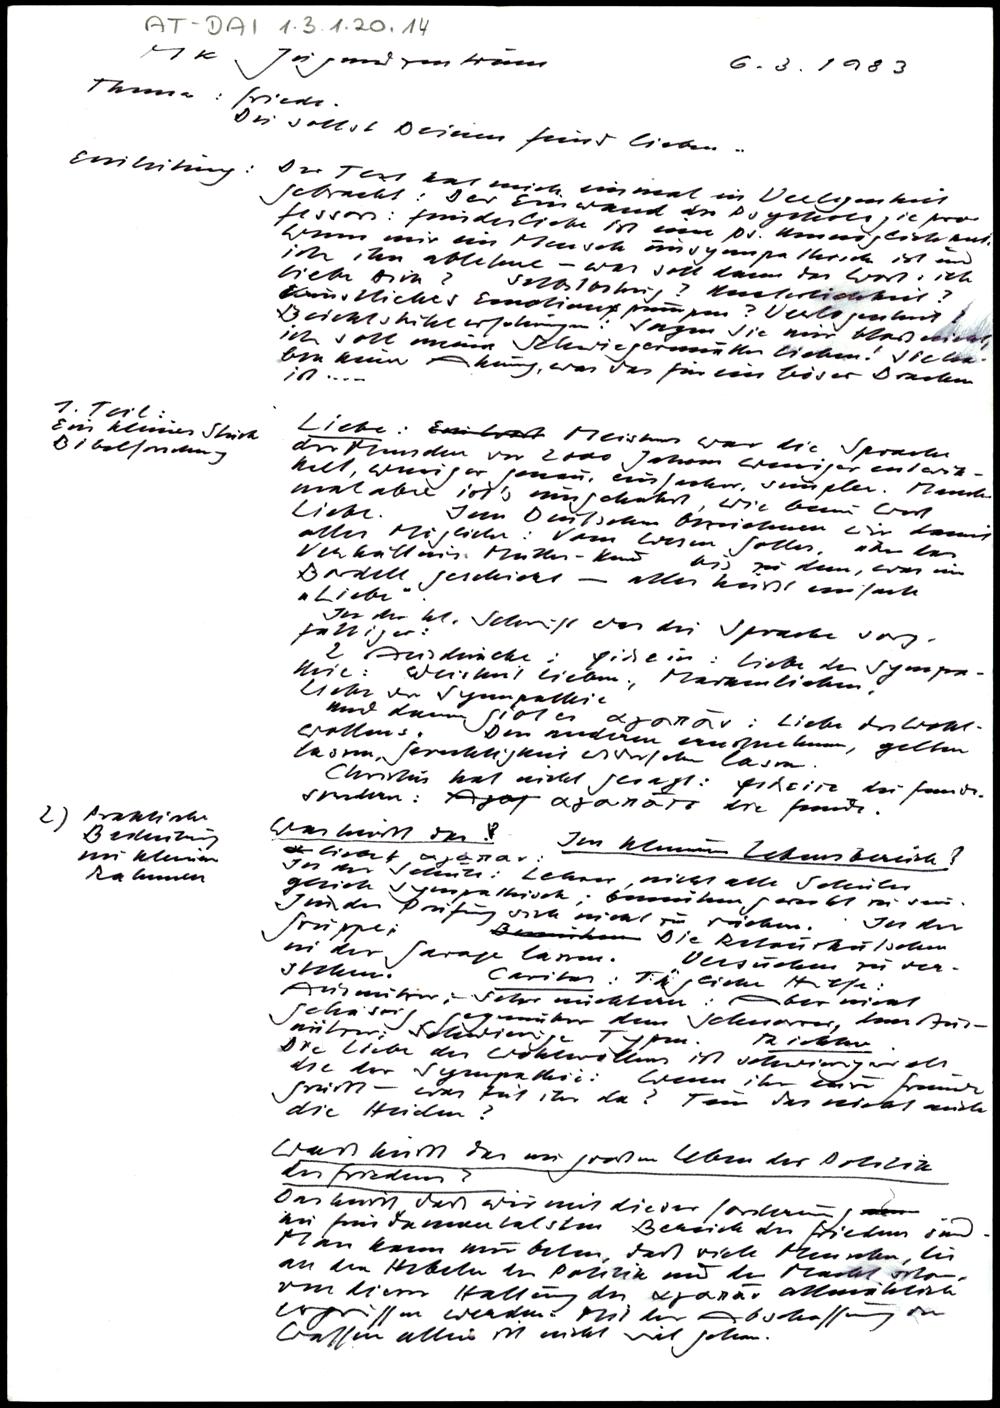 AT-DAI 1.3.1.20.14
MK Jugendzentrum 6.3.1983
Thema: Friede.
Du sollst Deinen Feind lieben..
Einleitung: Der Text hat mich einmal in Verlegenheit
gebracht: Der Einwand des Psychologiepro-
fessors: Feindesliebe ist eine ps. Unmöglichkeit.
Wenn mir ein Mensch unsympathisch ist und
ich ihn ablehne – was soll dann das Wort: ich
liebe Dich? Selbstbetrug? Unehrlichkeit?
Künstliches Emotionen pumpen? Verlogenheit?
Beichtstuhlerfahrungen: Sagen Sie mir bloß nicht,
ich soll meine Schwiegermutter lieben! Sie ha-
ben keine Ahnung, was das für ein böser Drachen
ist ....
1. Teil:
Ein kleines Stück
Bibelforschung
Liebe: Meistens war die Sprache
der Menschen vor 2000 Jahren weniger entwik-
kelt, weniger genau, einfacher, simpler. Manch-
mal aber ist's umgekehrt, wie beim Wort
Liebe. Im Deutschen bezeichnen wir damit
alles Mögliche: Vom Wesen Gottes, über das
Verhältnis Mutter-Kind bis zu dem, was im
Bordell geschieht – alles heißt einfach
"Liebe".
In der hl. Schrift war die Sprache sorg-
fältiger:
2 Ausdrücke: φιλεῖν: Liebe der Sympa-
thie: Weisheit lieben,
Liebe der Sympathie
Und dann gibt es αγαπᾶν: Liebe des Wohl-
wollens. Den anderen ernstnehmen, gelten
lassen, Gerechtigkeit walten lassen.
Christus hat nicht gesagt: φιλεῖτε die Feinde.
sondern: αγαπᾶτε die Feinde.
2) Praktische
Bedeutung
im kleinen
Rahmen
Was heißt das? Im kleinen Lebensbereich?
αγαπᾶν:
In der Schule: Lehrer, nicht alle Schüler
gleich sympathisch; bemühen gerecht zu sein.
In der Prüfung sich nicht zu rächen. In der
Gruppe; Die Retourkutschen
in der Garage lassen. Versuchen zu ver-
stehen. Caritas: Tägliche Hilfe:
Ausnützer; Sehr nüchtern: Aber nicht
gehässig gegenüber dem Schnorrer, dem Aus-
nützer; Schwierige Typen. Richten.
Die Liebe des Wohlwollens ist schwieriger als
die der Sympathie: Wenn ihr eure Freunde
grüßt – was tut ihr da? Tun das nicht auch
die Heiden?
Was heißt das im großen Leben der Politik
des Friedens?
Das heißt daß wir mit dieser Forderung
im fundamentalsten Bereich des Friedens sind.
Man kann nur beten, daß viele Menschen, die
an den Hebeln der Politik und der Macht
von dieser Haltung des αγαπᾶν allmählich
ergriffen werden. Mit der Abschaffung der
Waffen allein ist nicht viel getan.